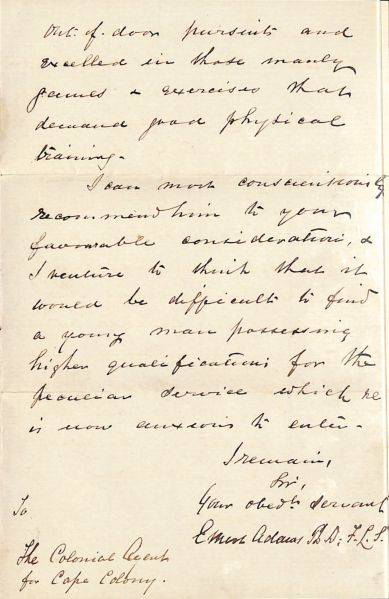 out-of-door pursuits and
excelled in those manly
games & exercises that
demand good physical
training.
I can most conscientiously
recommend him to your
favourable consideration, &
I venture to think that it
would be difficult to find
a young man possessing
higher qualifications for the
peculiar service which he
is now anxious to enter.
I remain,
Sir,
Your obedt. servant
Ernest Adams Ph.D; F.L.S.
To
The Colonial Agent
for Cape Colony.